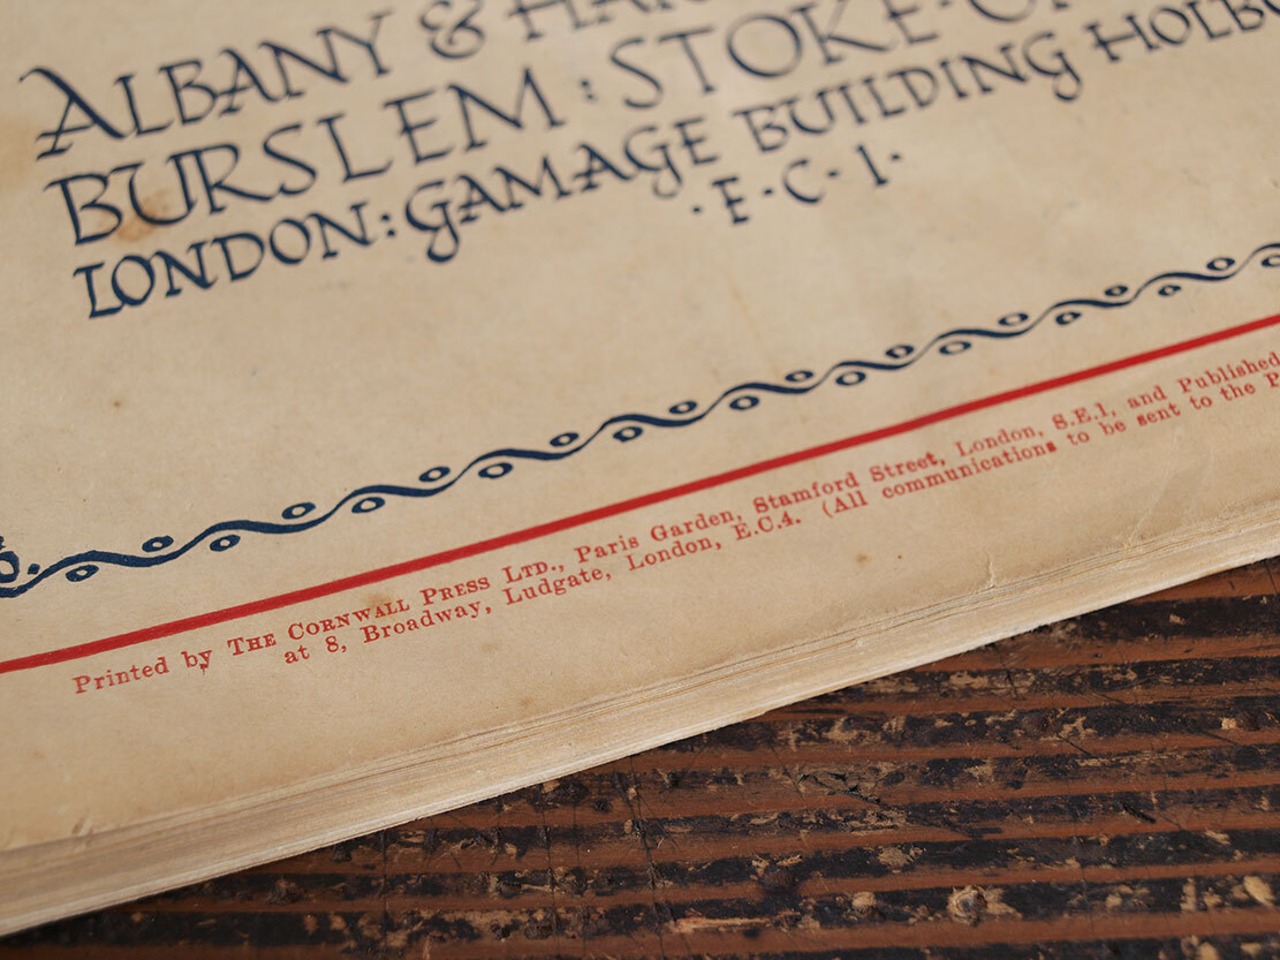 ALBANY & HAR
BURSLEM : STOKE·O
LONDON: GAMAGE BUILDING HOLBO
·E·C·1·
Printed by THE CORNWALL PRESS LTD., Paris Garden, Stamford Street, London, S.E.1, and Published
at 8, Broadway, Ludgate, London, E.C.4. (All communications to be sent to the P